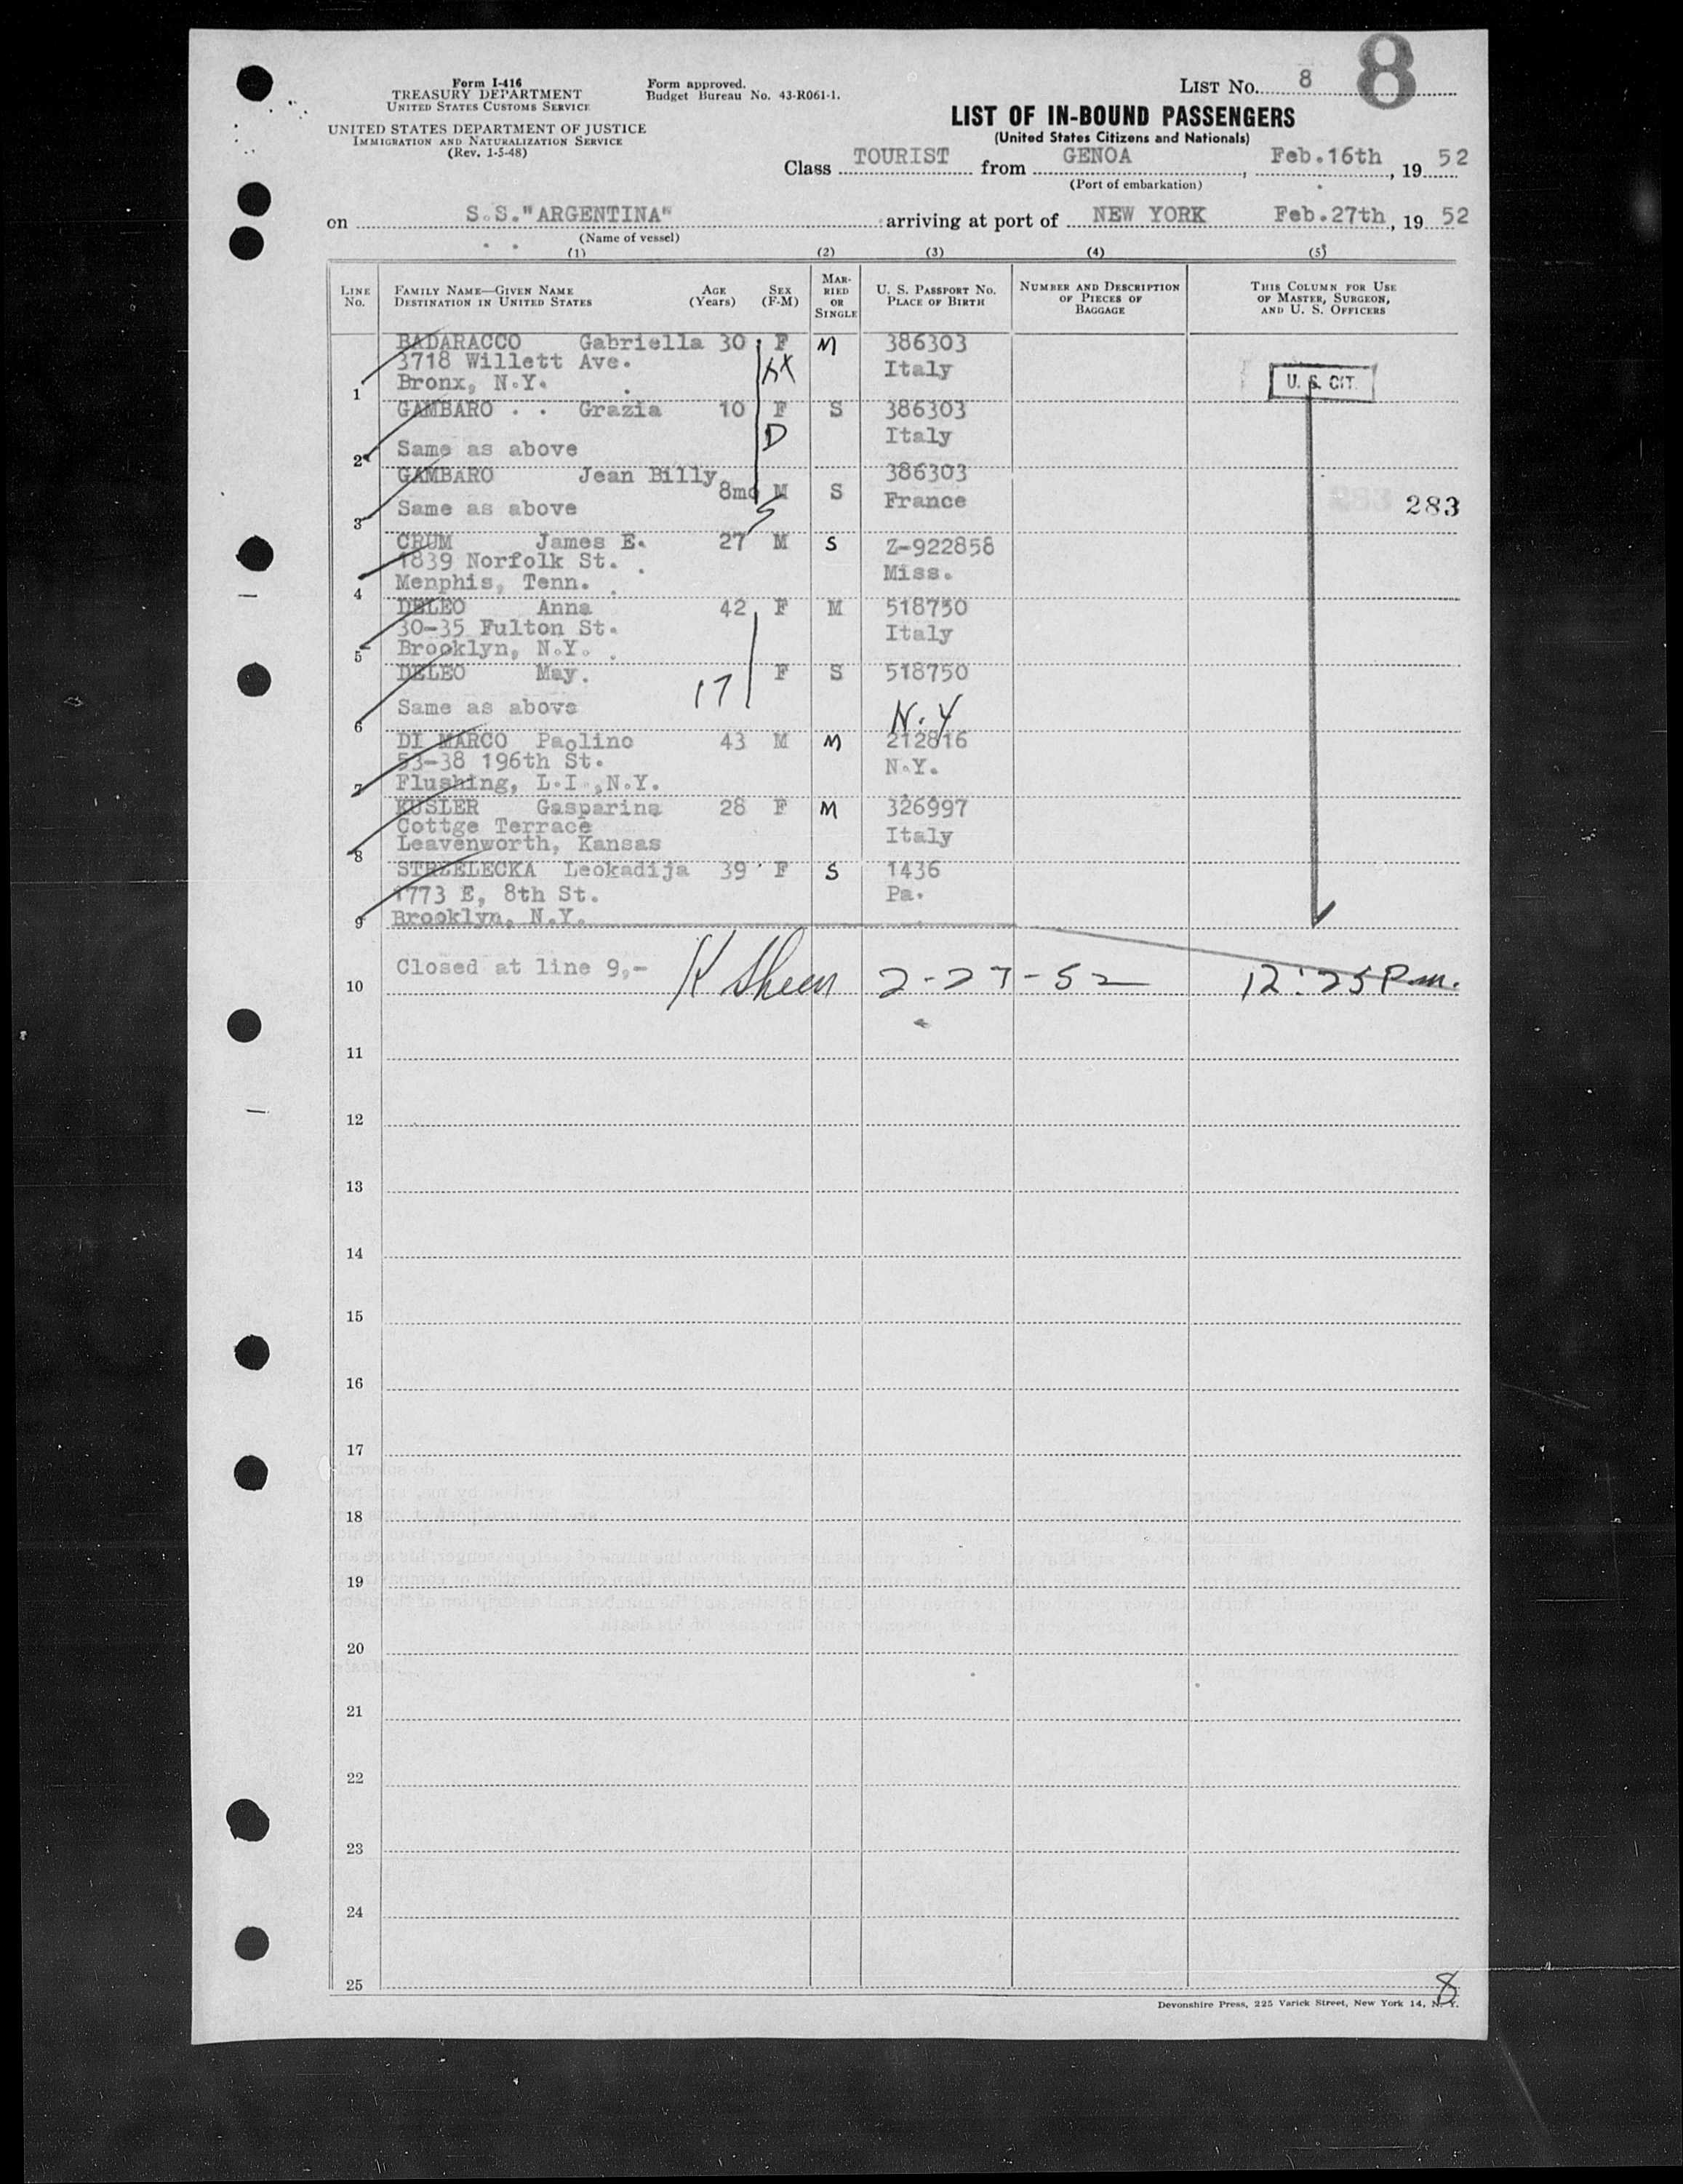 8
Form I-416
TREASURY DEPARTMENT
UNITED STATES CUSTOMS SERVICE
UNITED STATES DEPARTMENT OF JUSTICE
IMMIGRATION AND NATURALIZATION SERVICE
(Rev. 1-5-48)
Form approved.
Budget Bureau No. 43-R061-1.
LIST NO. 8
LIST OF IN-BOUND PASSENGERS
(United States Citizens and Nationals)
Class TOURIST from GENOA, Feb.16th, 19 52
(Port of embarkation)
on S.S."ARGENTINA" arriving at port of NEW YORK Feb.27th, 19 52
(Name of vessel)
(1) (2) (3) (4) (5)
LINE No.
FAMILY NAME—GIVEN NAME
DESTINATION IN UNITED STATES
AGE (Years)
SEX (F-M)
MARRIED OR SINGLE
U. S. PASSPORT NO.
PLACE OF BIRTH
NUMBER AND DESCRIPTION OF PIECES OF BAGGAGE
THIS COLUMN FOR USE OF MASTER, SURGEON, AND U. S. OFFICERS
BADARACCO Gabriella 30 F M 386303
3718 Willett Ave. Italy
Bronx, N.Y. U. S. CIT.
1
GAMBARO Grazia 10 F S 386303
D Italy
2 Same as above
GAMBARO Jean Billy 386303
8mo M S France
3 Same as above 283
CRUM James E. 27 M S Z-922858
1839 Norfolk St. Miss.
Menphis, Tenn.
4
DELEO Anna 42 F M 518750
30-35 Fulton St. Italy
5 Brooklyn, N.Y.
DELEO May. 17 F S 518750
Same as above N.Y
6
DI MARCO Paolino 43 M M 212816
53-38 196th St. N.Y.
7 Flushing, L.I.,N.Y.
KUSLER Gasparina 28 F M 326997
Cottge Terrace Italy
Leavenworth, Kansas
8
STRZELECKA Leokadija 39 F S 1436
1773 E, 8th St. Pa.
9 Brooklyn, N.Y.
10 Closed at line 9,- 2-27-52 12:25 P.m.
11
12
13
14
15
16
17
18
19
20
21
22
23
24
25
8
Devonshire Press, 225 Varick Street, New York 14, N. Y.